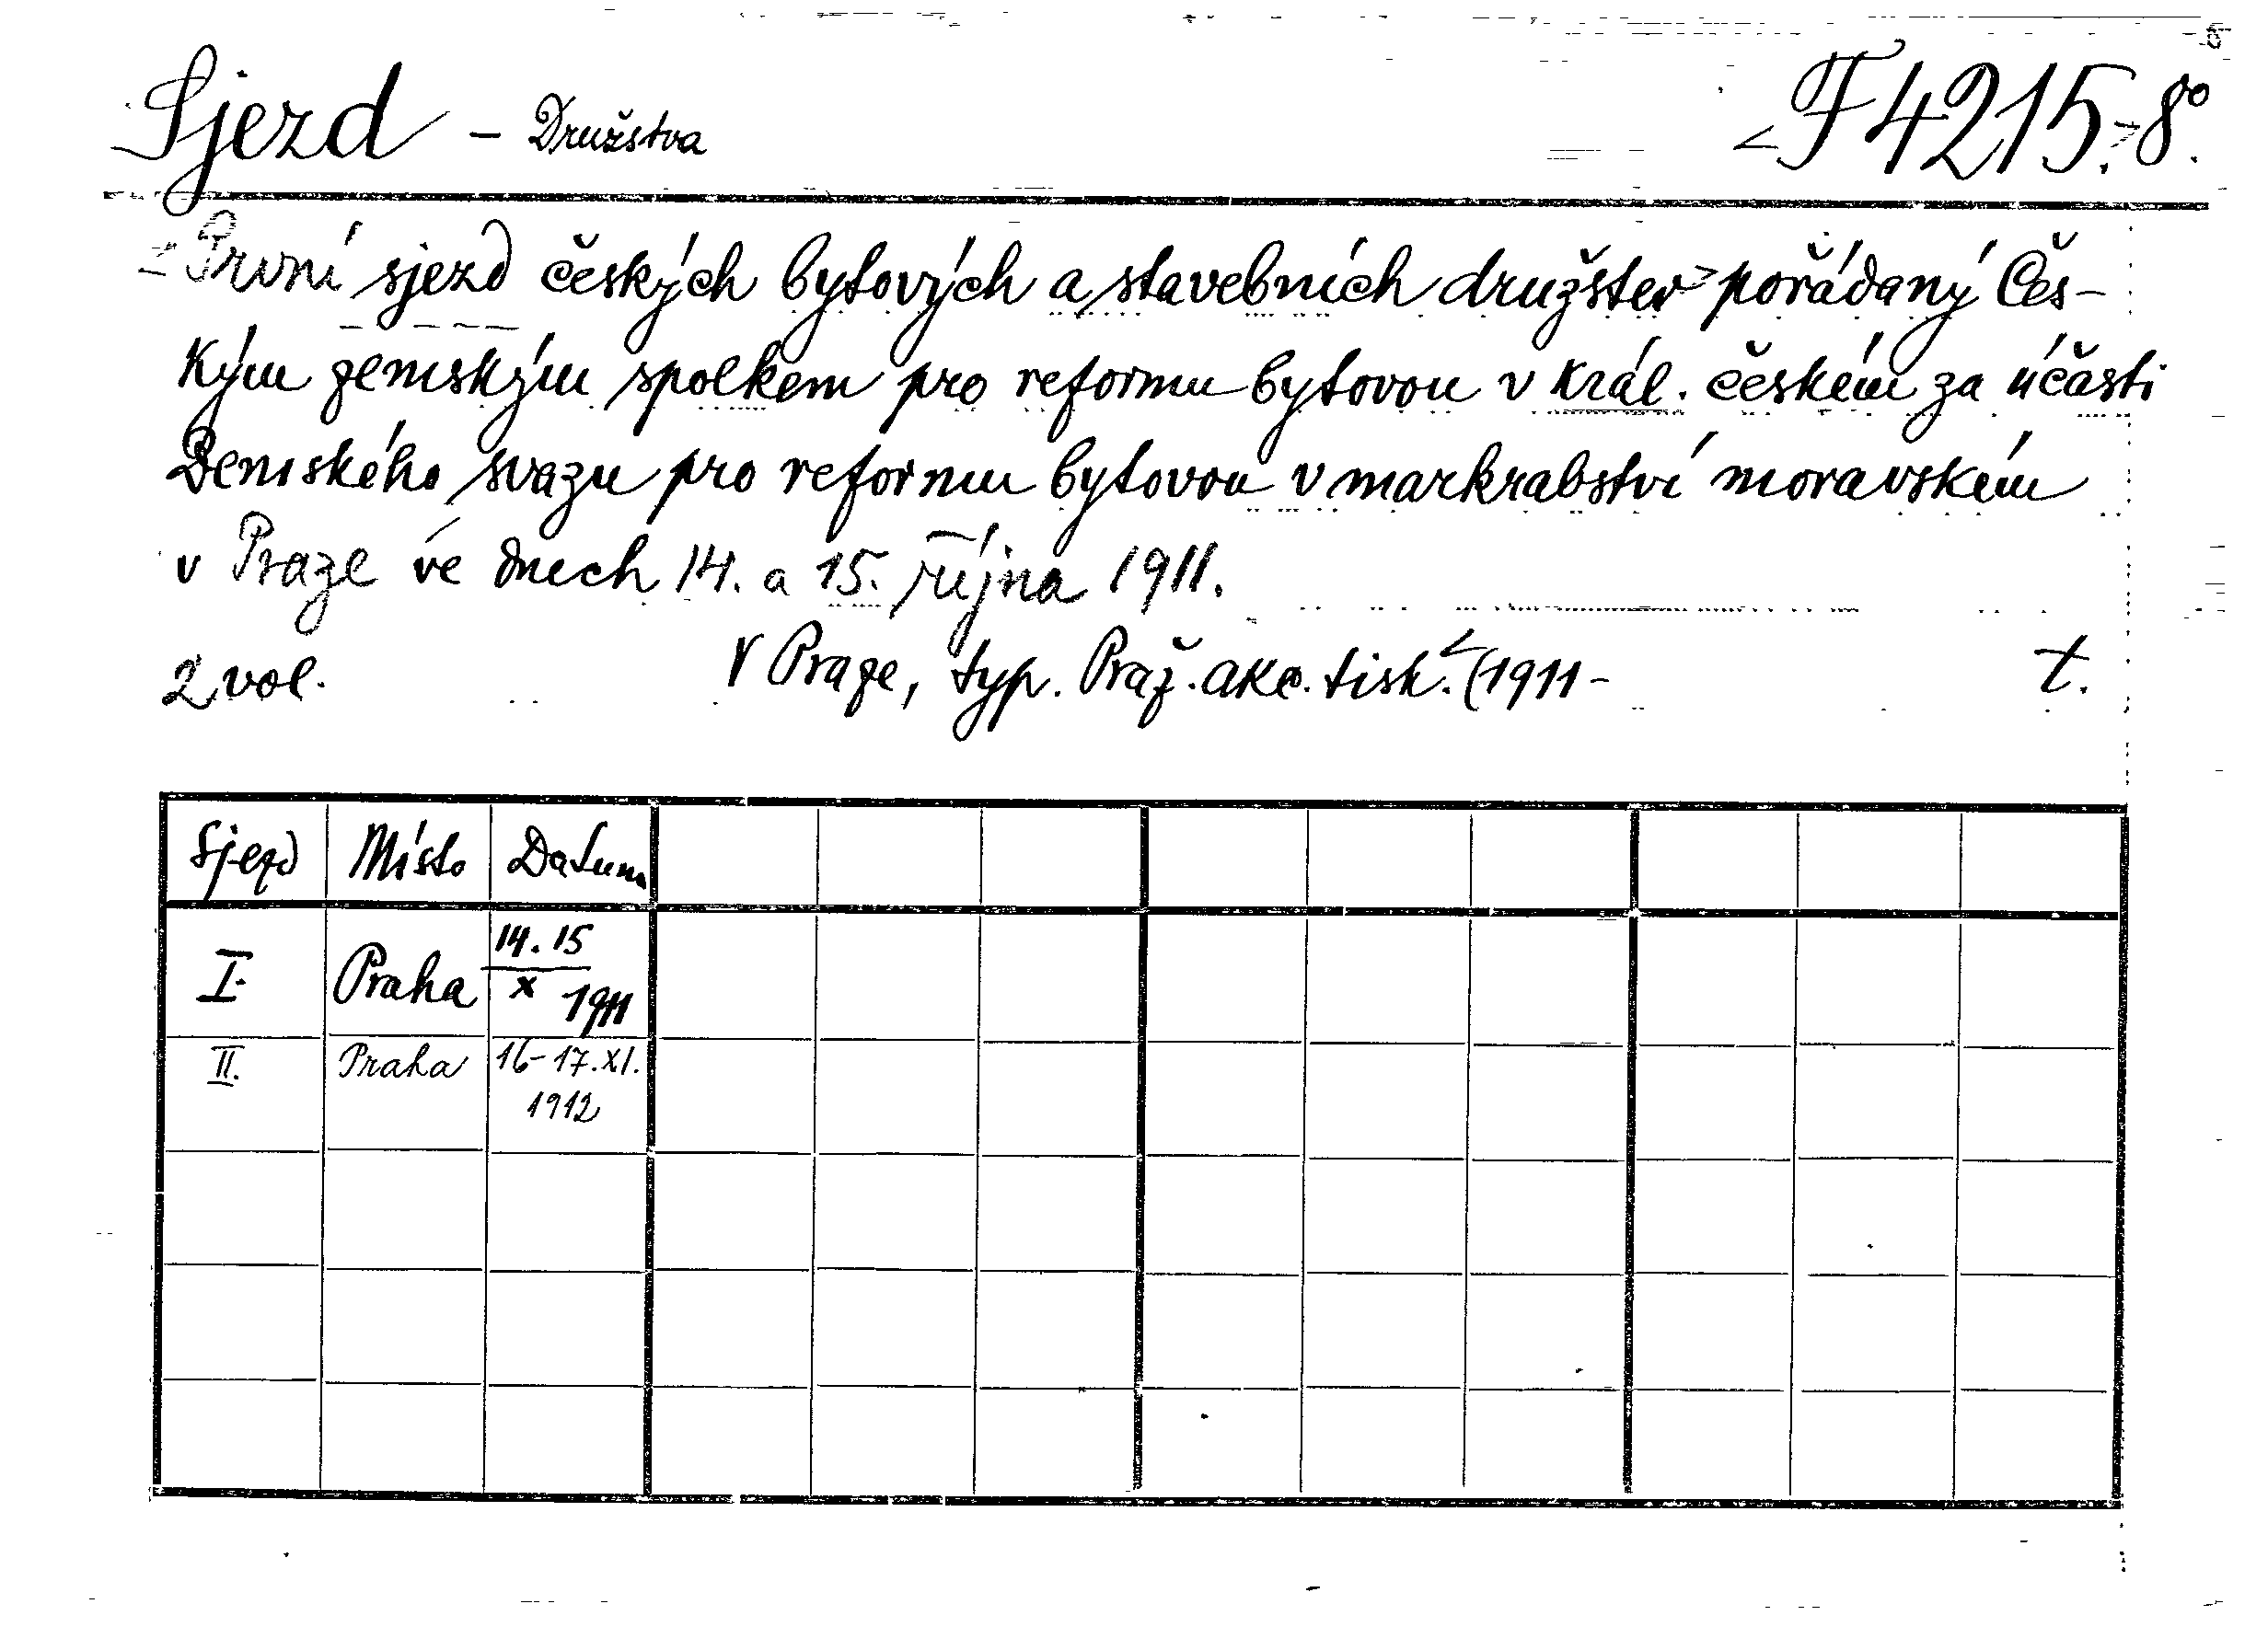 Sjezd – Družstva <F 4215.>8°.
<První sjezd českých bytových a stavebních družstev> pořádaný Čes-
kým zemským spolkem pro reformu bytovou v král. českém za účasti
Zemského svazu pro reformu bytovou v markrabství moravském
v Praze ve dnech 14. a 15. října 1911.
2 vol. V Praze, typ. Praž. akc. tisk. <(1911 – t.
Sjezd Místo Datum
I. Praha 14. 15 X 1911
II. Praha 16–17. XI. 1912